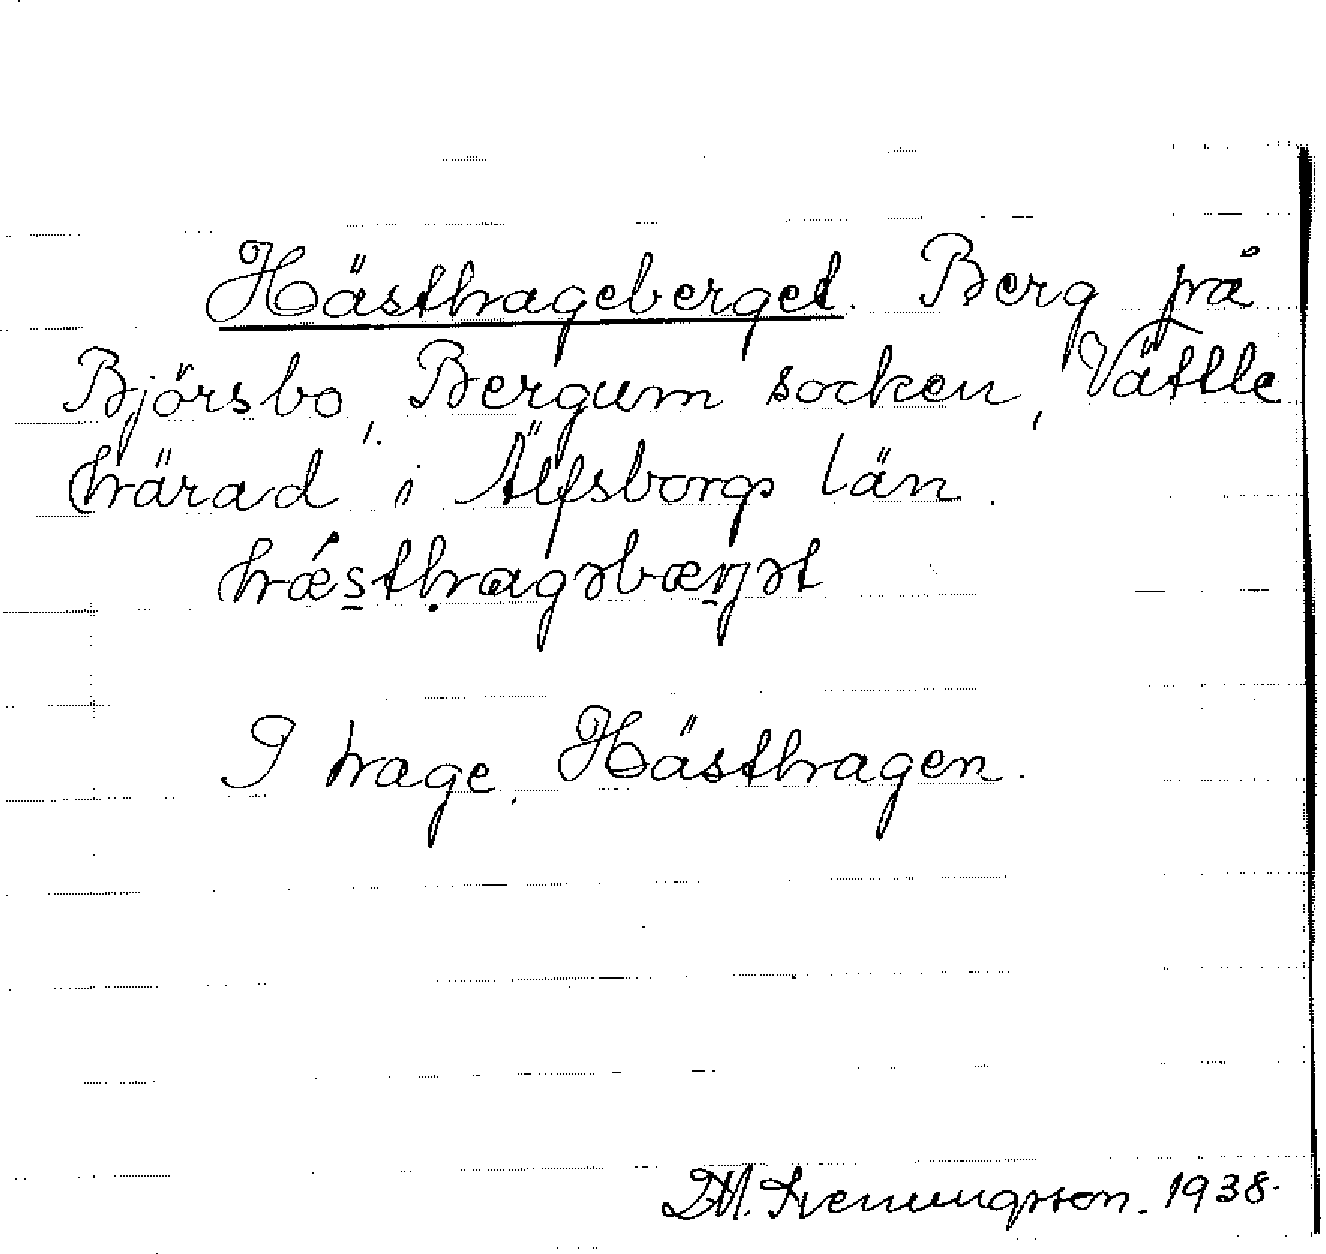 Hästhageberget. Berg på
Björsbo, Bergum socken, Vättle
härad i Älfsborgs län.
hǽsthagəbærjət
I hage, Hästhagen.
D.M. Svenungsson. 1938.